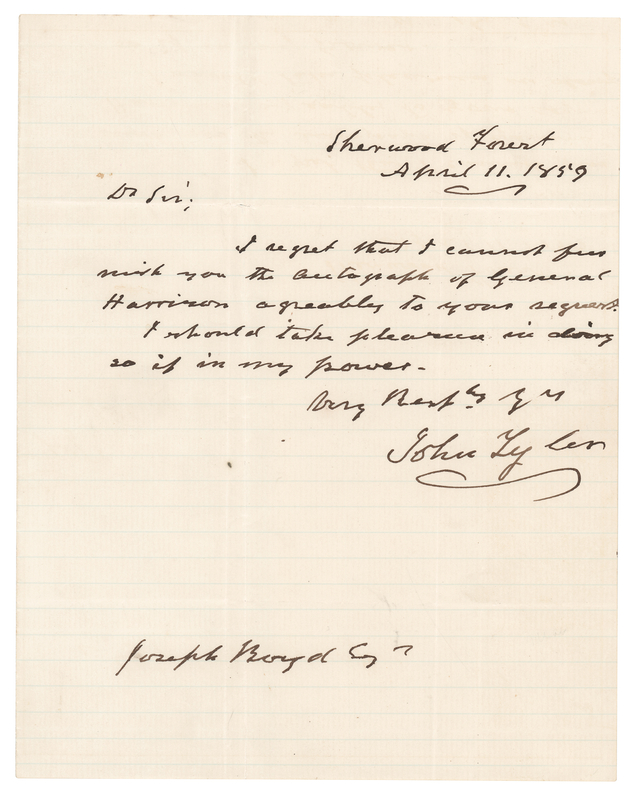 Sherwood Forest
April 11. 1859
Dr Sir;
I regret that I cannot fur
nish you the autograph of General
Harrison agreably to your request.
I should take pleasure in doing
so if in my power.
Very Resply Yrs
John Tyler
Joseph Boyd Esqr